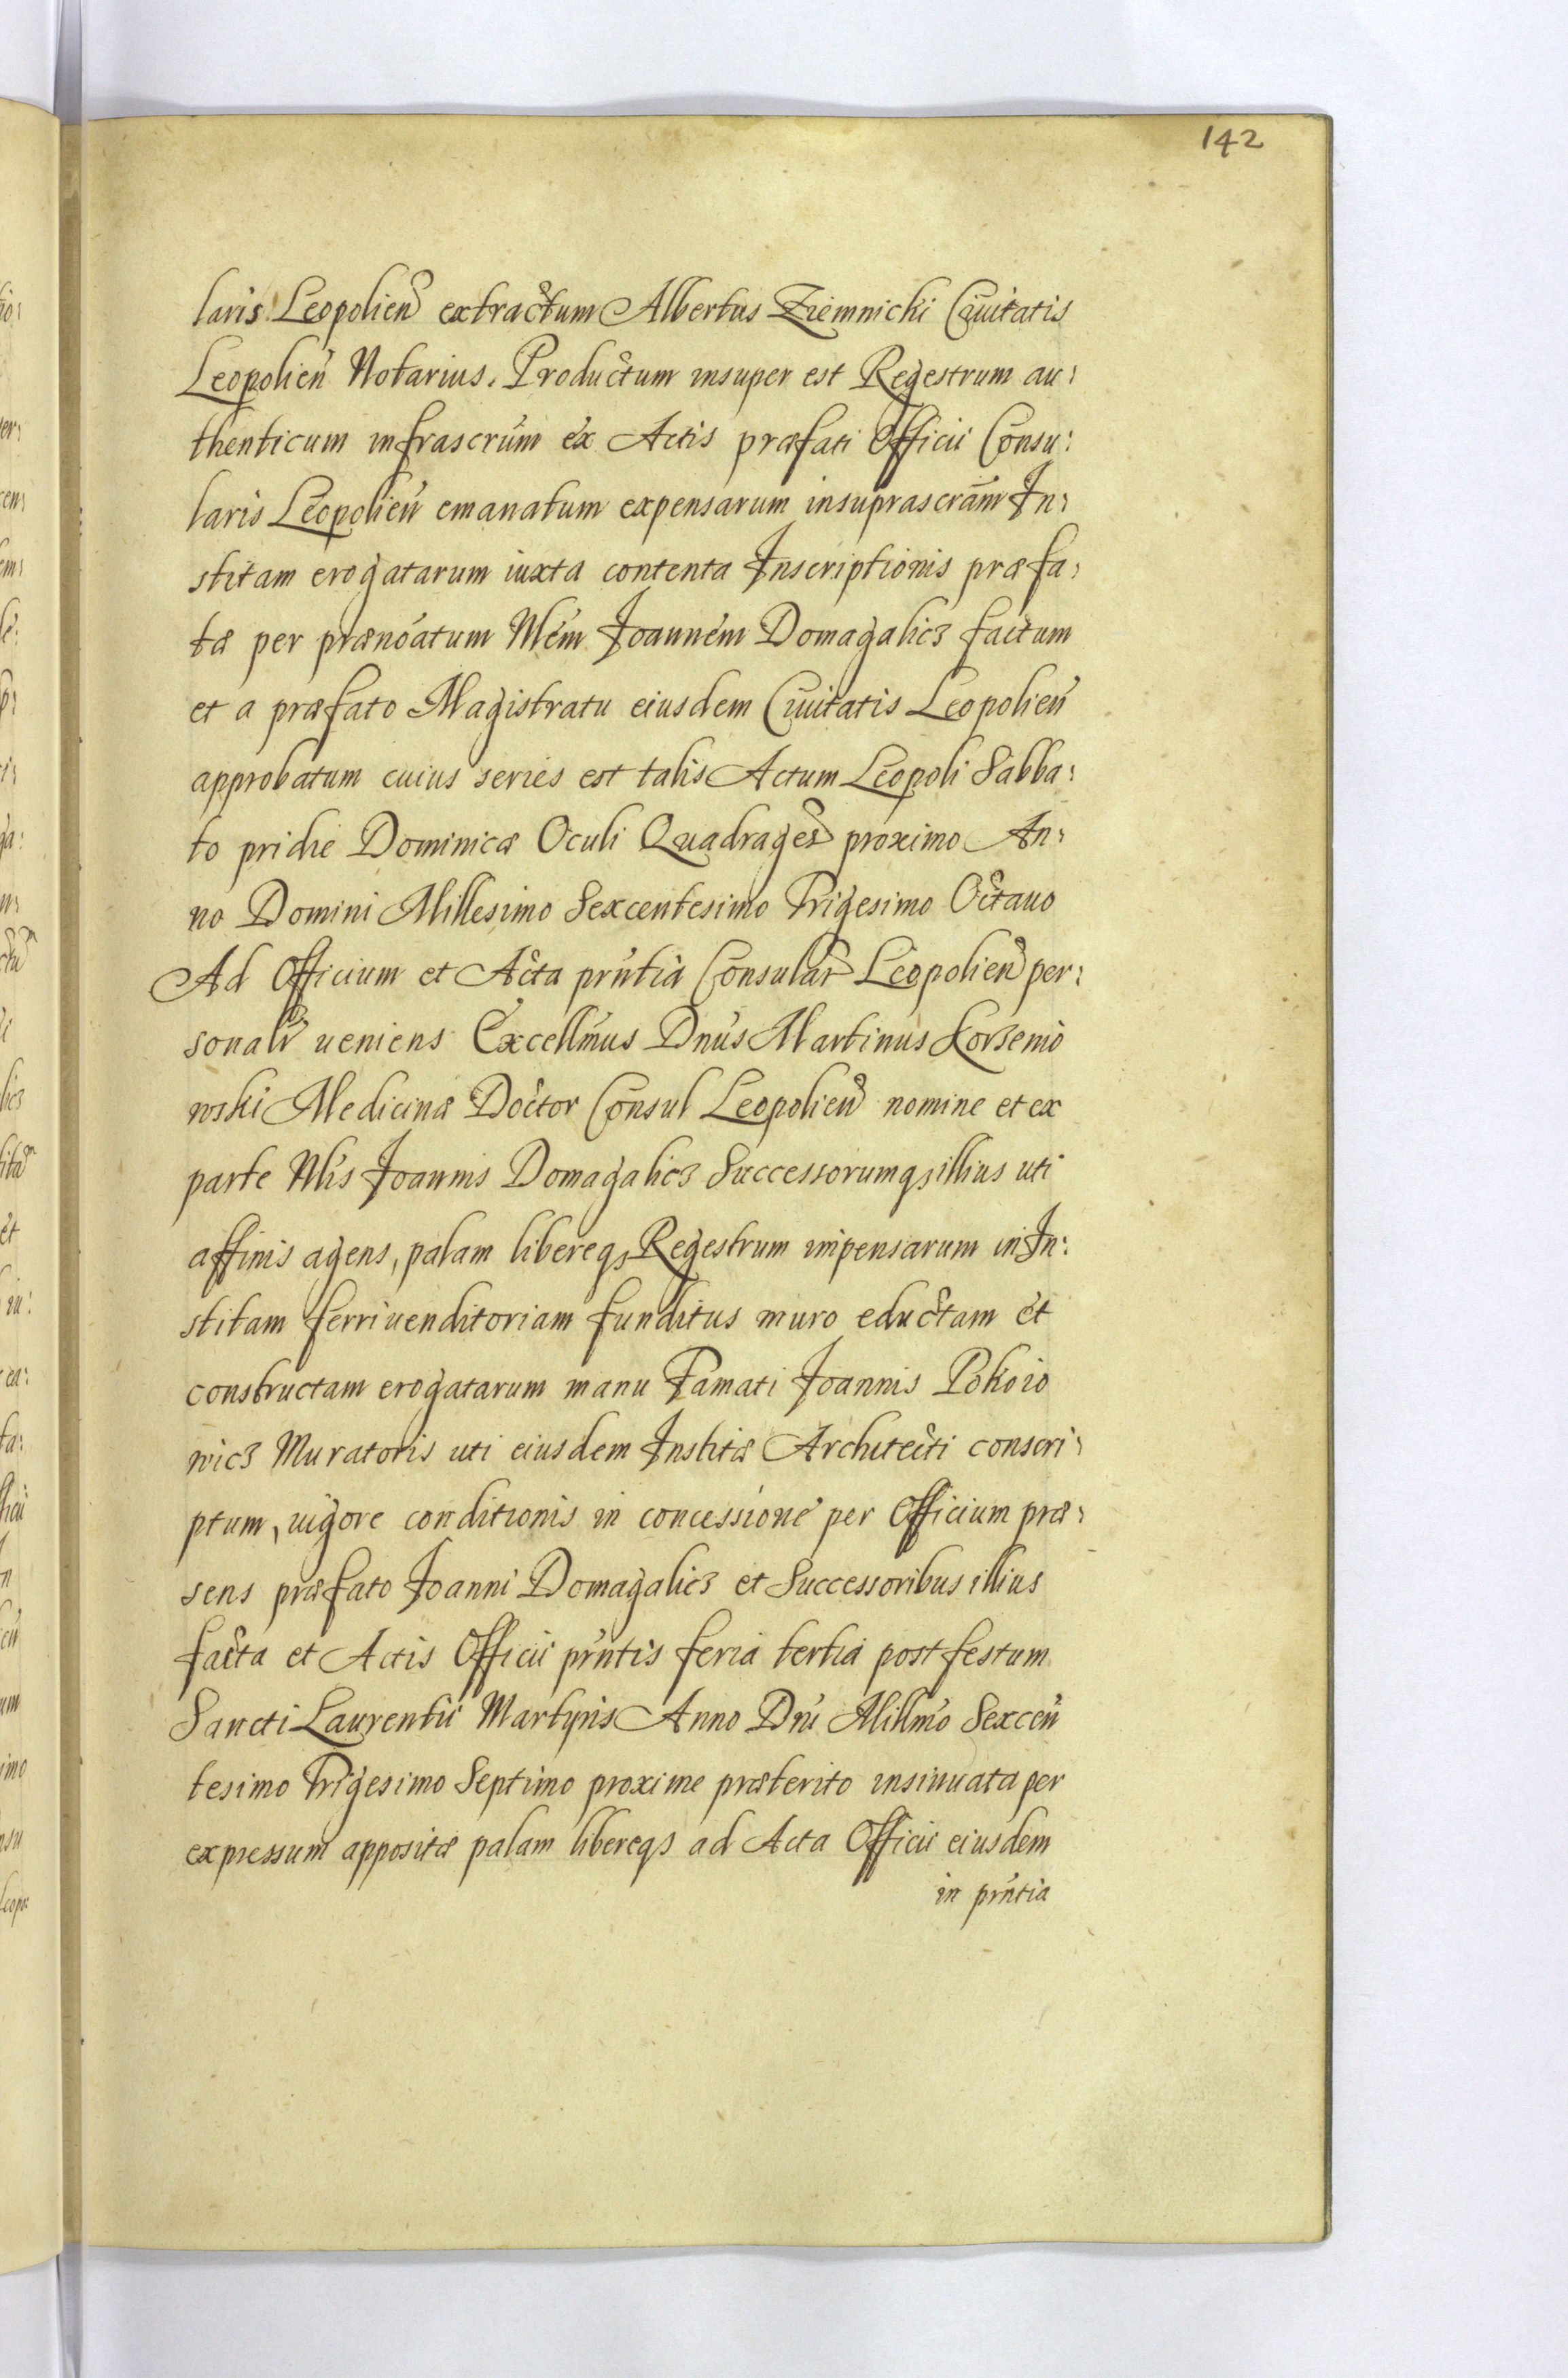 142
laris Leopolień extractum Albertus Ziemnicki Ciuitatis
Leopolień Notarius. Productum insuper est Regestrum au:
thenticum infrascrūm ex Actis præfati Officii Consu:
laris Leopolień emanatum expensarum in suprascrām In:
stitam erogatarum iuxta contenta Inscriptionis præfa:
tæ per prænoatum Nlem Joannem Domagalicz factum
et a præfato Magistratu eiusdem Ciuitatis Leopolień
approbatum cuius series est talis Actum Leopoli Sabba:
to pridie Dominicæ Oculi Quadrages proximo An:
no Domini Millesimo Sexcentesimo Trigesimo Octauo
Ad Officium et Acta prńtia Consular Leopolień per:
sonalr ueniens Excellmus Dnus Martinus Korzenio
wski Medicinæ Doctor Consul Leopolień nomine et ex
parte Nlis Joannis Domagalicz Successorumqs illius uti
affinis agens, palam libereqs Regestrum impensarum in In:
stitam ferriuenditoriam funditus muro eductam et
constructam erogatarum manu Famati Joannis Pokoio
wicz Muratoris uti eiusdem Institæ Architecti conscri:
ptum, uigore conditionis in concessione per Officium præ:
sens præfato Joanni Domagalicz et Successoribus illius
facta et Actis Officii prńtis feria tertia post festum
Sancti Laurentii Martyris Anno Dni Millmo Sexceń
tesimo Trigesimo Septimo proxime præterito insinuata per
expressum appositæ palam libereqs ad Acta Officii eiusdem
in prńtia